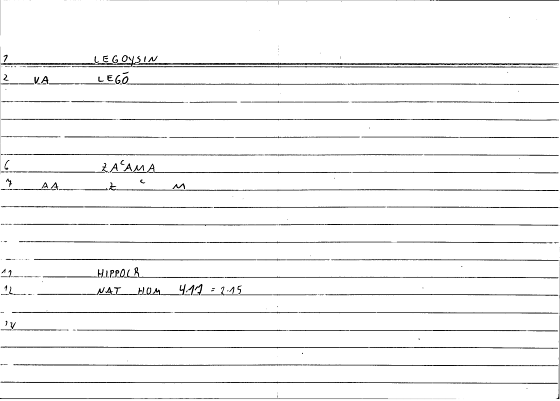 1 LEGOYSIN
2 VA LEGŌ
6 ZAᶜAMA
7 AA Z ᶜ M
11 HIPPOCR
12 NAT HOM 4.17 = 2.15
IV